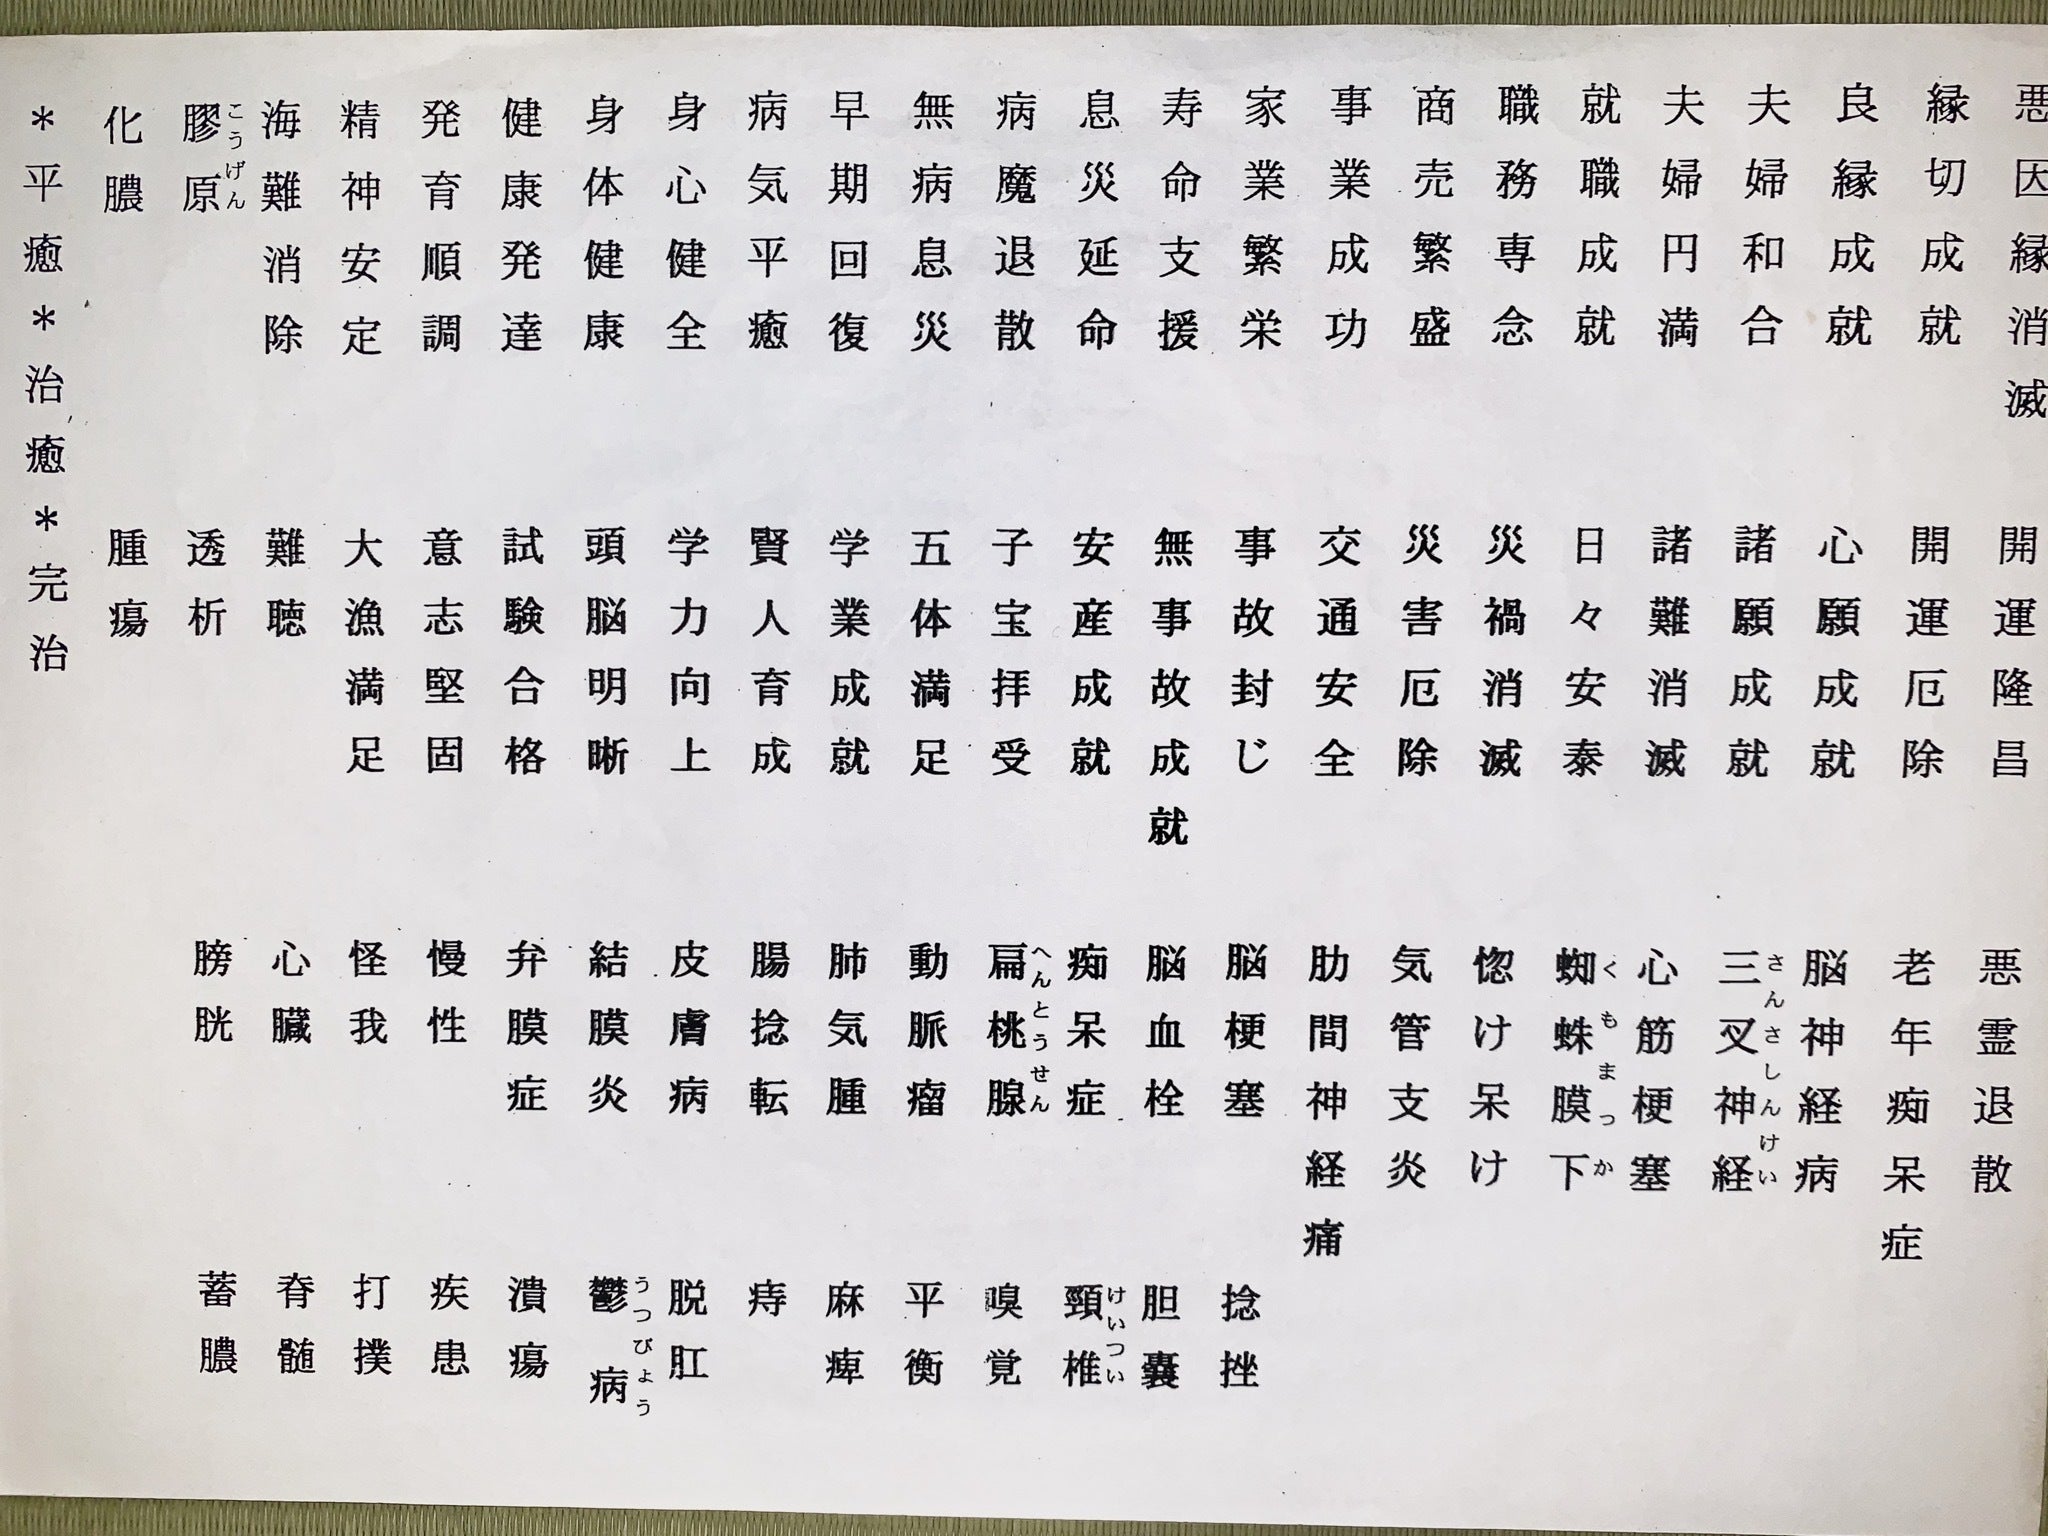 悪因縁消滅
縁切成就
良縁成就
夫婦和合
夫婦円満
就職成就
職務専念
商売繁盛
事業成功
家業繁栄
寿命支援
息災延命
病魔退散
無病息災
早期回復
病気平癒
身心健全
身体健康
健康発達
発育順調
精神安定
海難消除
膠原
こうげん
化膿
開運隆昌
開運厄除
心願成就
諸願成就
諸難消滅
日々安泰
災禍消滅
災害厄除
交通安全
事故封じ
無事故成就
安産成就
子宝拝受
五体満足
学業成就
賢人育成
学力向上
頭脳明晰
試験合格
意志堅固
大漁満足
難聴
透析
腫瘍
悪霊退散
老年痴呆症
脳神経病
三叉神経
さんさしんけい
心筋梗塞
蜘蛛膜下
くもまっか
惚け呆け
気管支炎
肋間神経痛
脳梗塞
脳血栓
痴呆症
扁桃腺
へんとうせん
動脈瘤
肺気腫
腸捻転
皮膚病
結膜炎
弁膜症
慢性
怪我
心臓
膀胱
捻挫
胆嚢
頸椎
けいつい
嗅覚
平衡
麻痺
痔
脱肛
鬱病
うつびょう
潰瘍
疾患
打撲
脊髄
蓄膿
＊平癒＊治癒＊完治